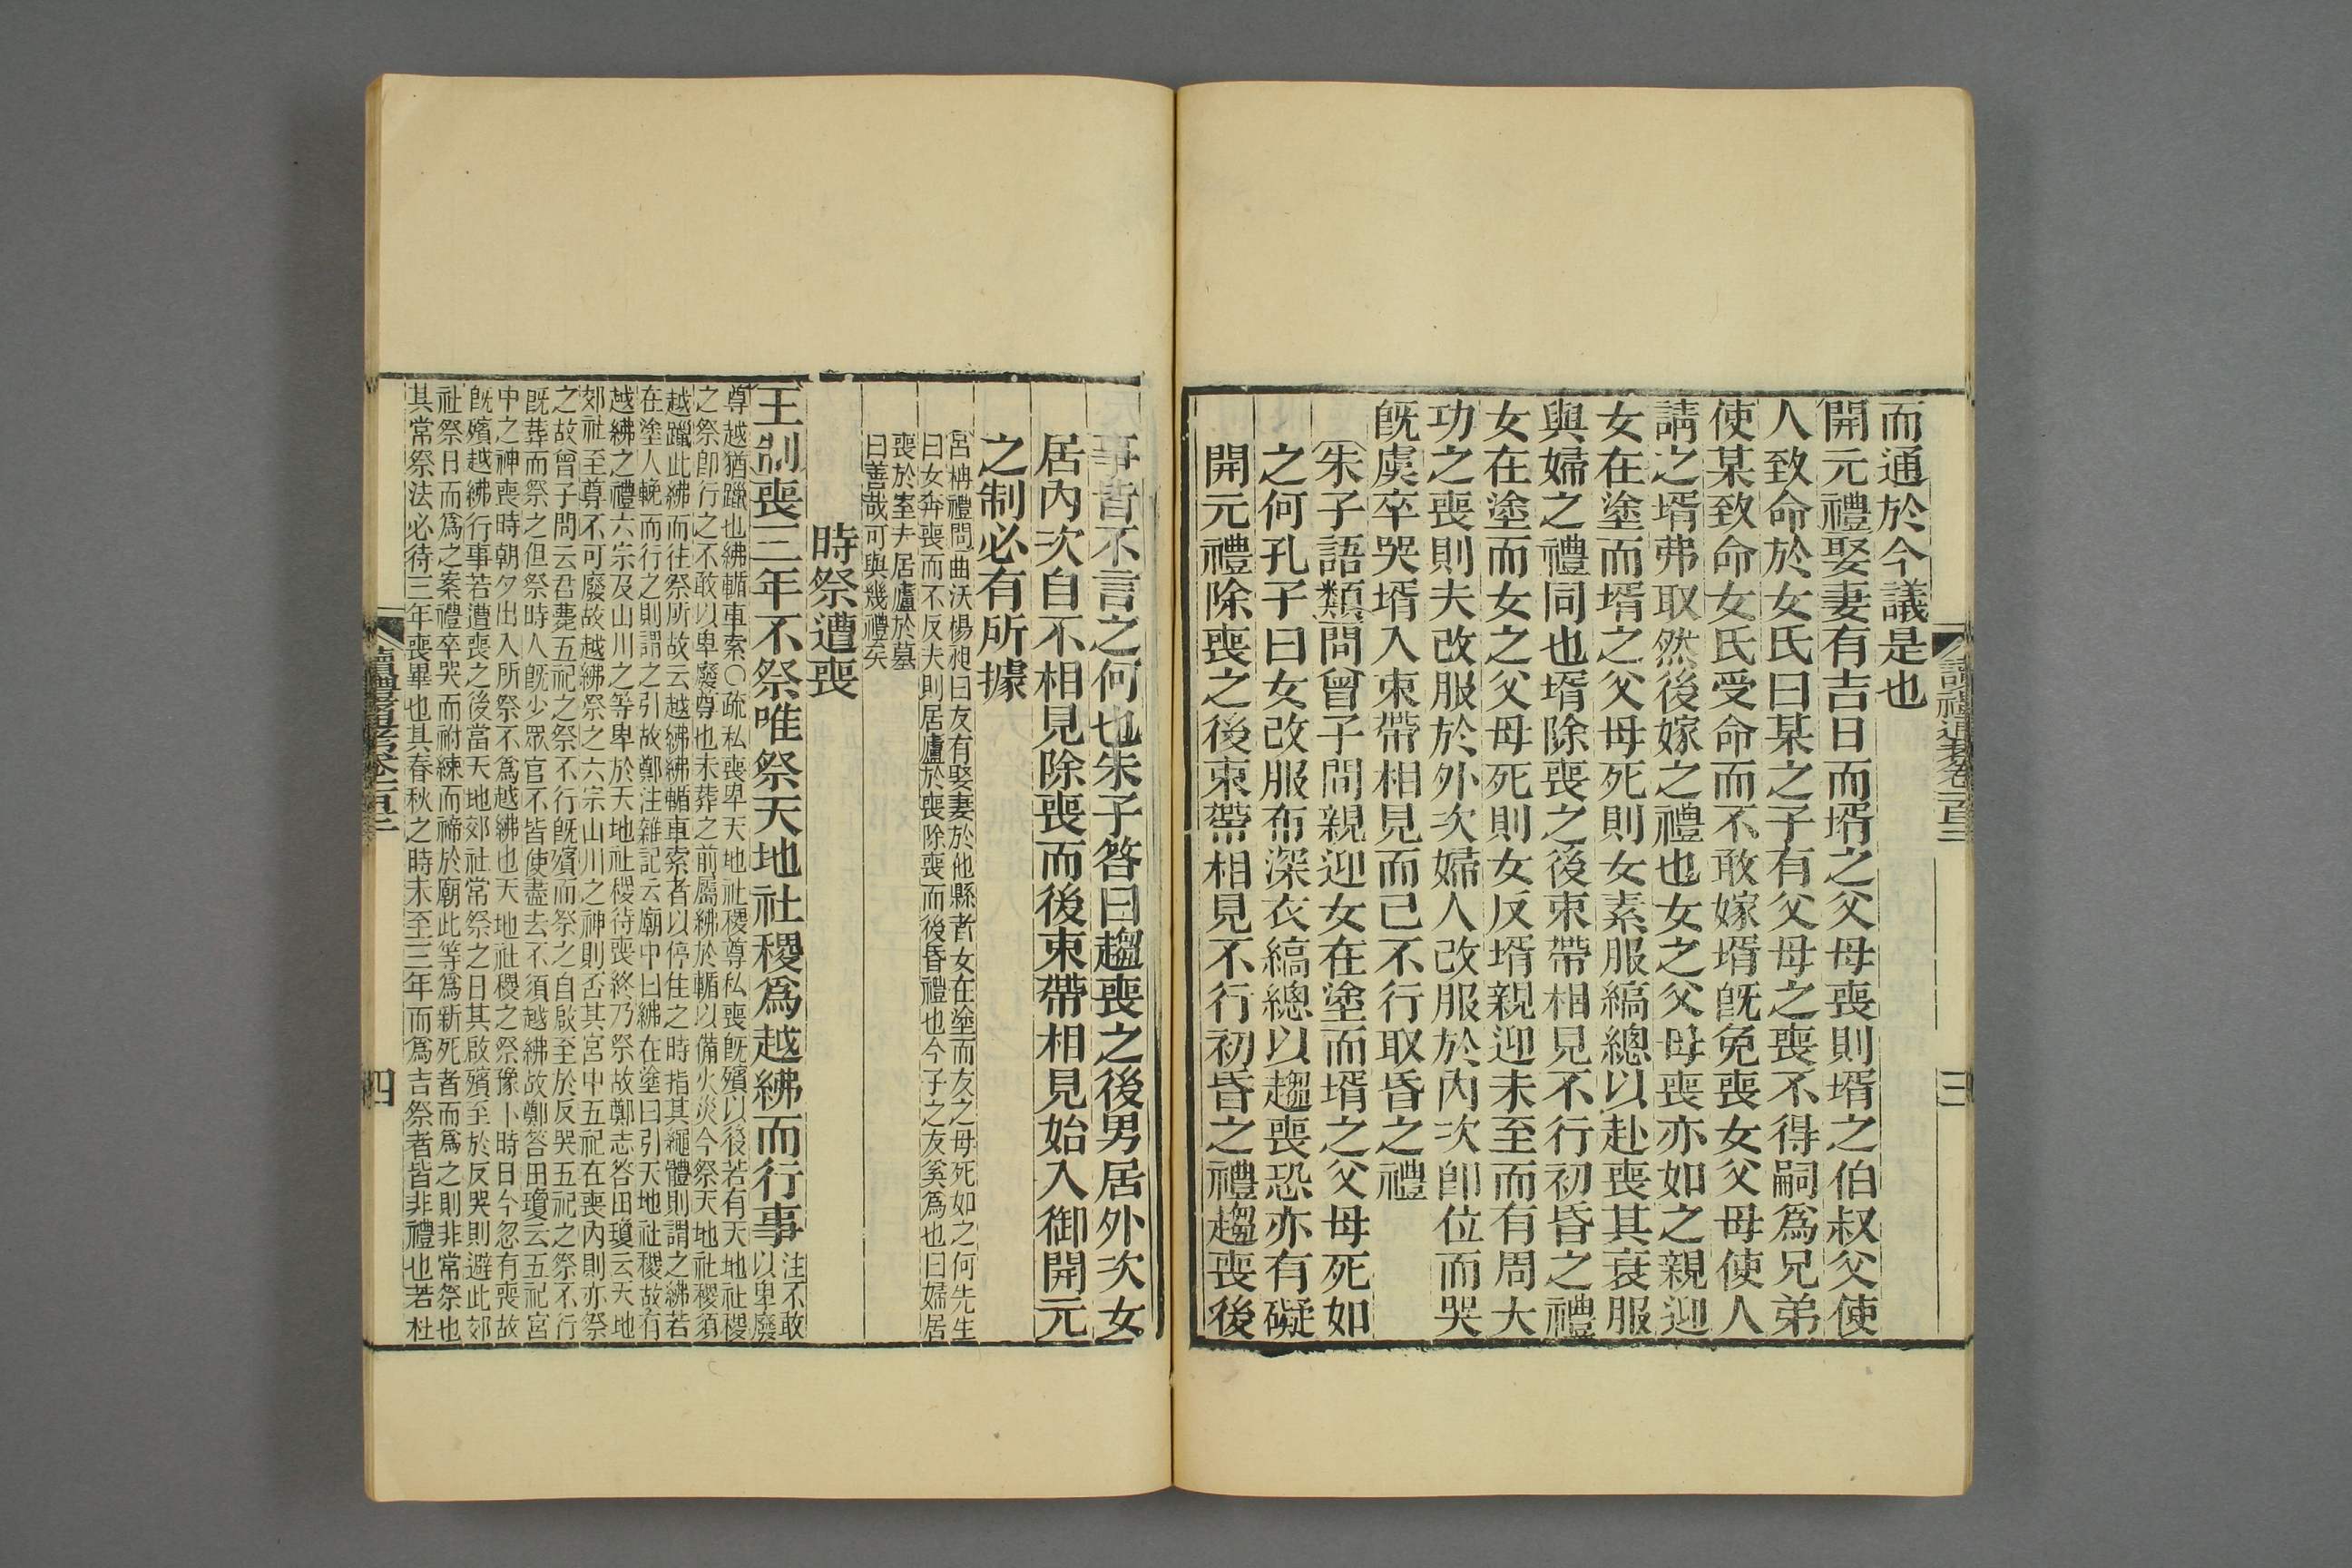 而通於今議是也
開元禮娶妻有吉日而壻之父母喪則壻之伯叔父使
人致命於女氏曰某之子有父母之喪不得嗣爲兄弟
使某致命女氏受命而不敢嫁壻旣免喪女父母使人
請之壻弗取然後嫁之禮也女之父母喪亦如之親迎
女在塗而壻之父母死則女素服縞總以赴喪其衰服
與婦之禮同也壻除喪之後束帶相見不行初昏之禮
女在塗而女之父母死則女反壻親迎未至而有周大
功之喪則夫改服於外次婦人改服於內次卽位而哭
旣虞卒哭壻入束帶相見而已不行取昏之禮
朱子語類問曾子問親迎女在塗而壻之父母死如
之何孔子曰女改服布深衣縞總以趨喪恐亦有礙
開元禮除喪之後束帶相見不行初昏之禮趨喪後
讀禮通考卷一百三
三
事皆不言之何也朱子答曰趨喪之後男居外次女
居內次自不相見除喪而後束帶相見始入御開元
之制必有所據
呂柟禮問曲沃楊祒曰友有娶妻於他縣者女在塗而友之母死如之何先生
曰女奔喪而不反夫則居廬於喪除喪而後昏禮也今子之友奚爲也曰婦居
喪於室夫居廬於墓
曰善哉可與幾禮矣
時祭遭喪
王制喪三年不祭唯祭天地社稷爲越紼而行事
注不敢
以卑廢
尊越猶躐也紼輴車索〇疏私喪卑天地社稷尊私喪旣殯以後若有天地社稷
之祭卽行之不敢以卑廢尊也未葬之前屬紼於輴以備火災今祭天地社稷須
越躐此紼而往祭所故云越紼紼輴車索者以停住之時指其繩體則謂之紼若
在塗人輓而行之則謂之引故鄭注雜記云廟中曰紼在塗曰引天地社稷故有
越紼之禮六宗及山川之等卑於天地社稷待喪終乃祭故鄭志答田瓊云天地
郊社至尊不可廢故越紼祭之六宗山川之神則否其宮中五祀在喪內則亦祭
之故曾子問云君薨五祀之祭不行旣殯而祭之自啟至於反哭五祀之祭不行
旣葬而祭之但祭時人旣少眾官不皆使盡去不須越紼故鄭答田瓊云五祀宮
中之神喪時朝夕出入所祭不爲越紼也天地社稷之祭豫卜時日今忽有喪故
旣殯越紼行事若遭喪之後當天地郊社常祭之日其啟殯至於反哭則避此郊
社祭日而爲之案禮卒哭而祔練而禘於廟此等爲新死者而爲之則非常祭也
其常祭法必待三年喪畢也其春秋之時未至三年而爲吉祭者皆非禮也若杜
四